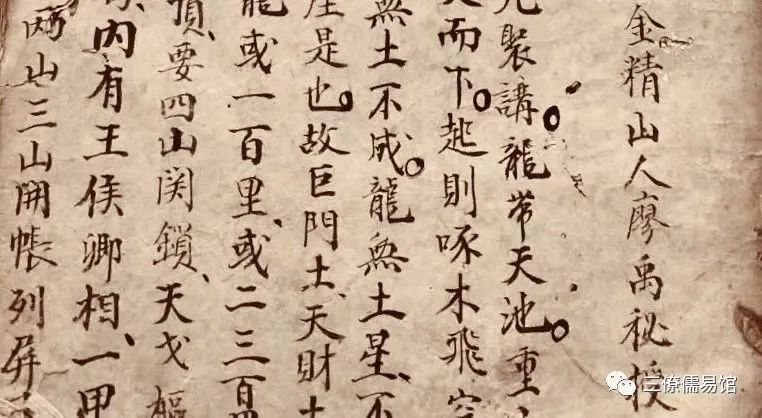 金精山人廖禹秘授
聚講。龍帶天池。重
而下。起則啄木飛空
無土不成。龍無土星、不
是也。故巨門土、天財土
龍或一百里、或二三百
頂、要四山関鎖、天戈
内有王侯卿相、一甲
两山三山開帳列屏
三僚儒易馆